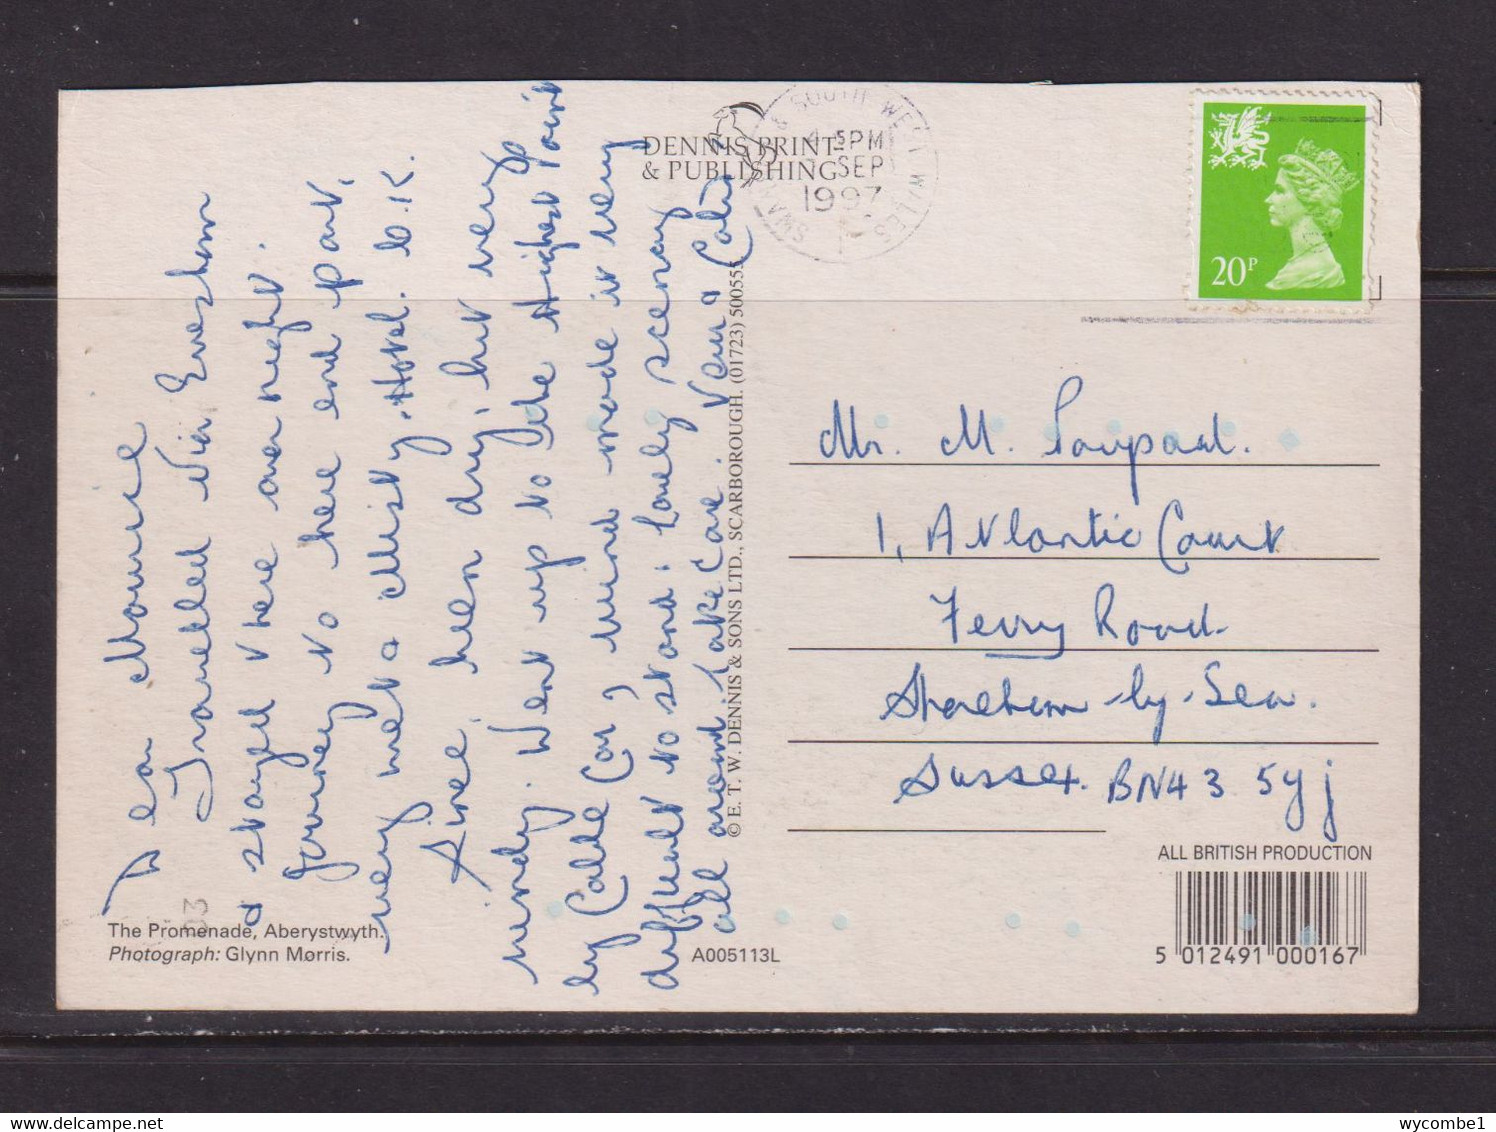 Dear Maurice
Travelled via Evesham
& stayed there over night.
Journey to here end part,
very wet & misty. Hotel. O.K.
Since, been dry, but very
windy. Went up to the Highest Point
by Cable Car, wind made it very
difficult to stand. Lovely scenery
all around. Take care. Vera &
The Promenade, Aberystwyth.
Photograph: Glynn Morris.
A005113L
DENNIS PRINT
& PUBLISHING
© E. T. W. DENNIS & SONS LTD., SCARBOROUGH. (01723) 500555
& SOUTH WEST WALES
5PM
SEP
1997
20P
Mr. M.
1, Atlantic Court
Ferry Road
Shoreham-by-Sea.
Sussex. BN43 5YJ
ALL BRITISH PRODUCTION
5 012491 000167
wycombe1